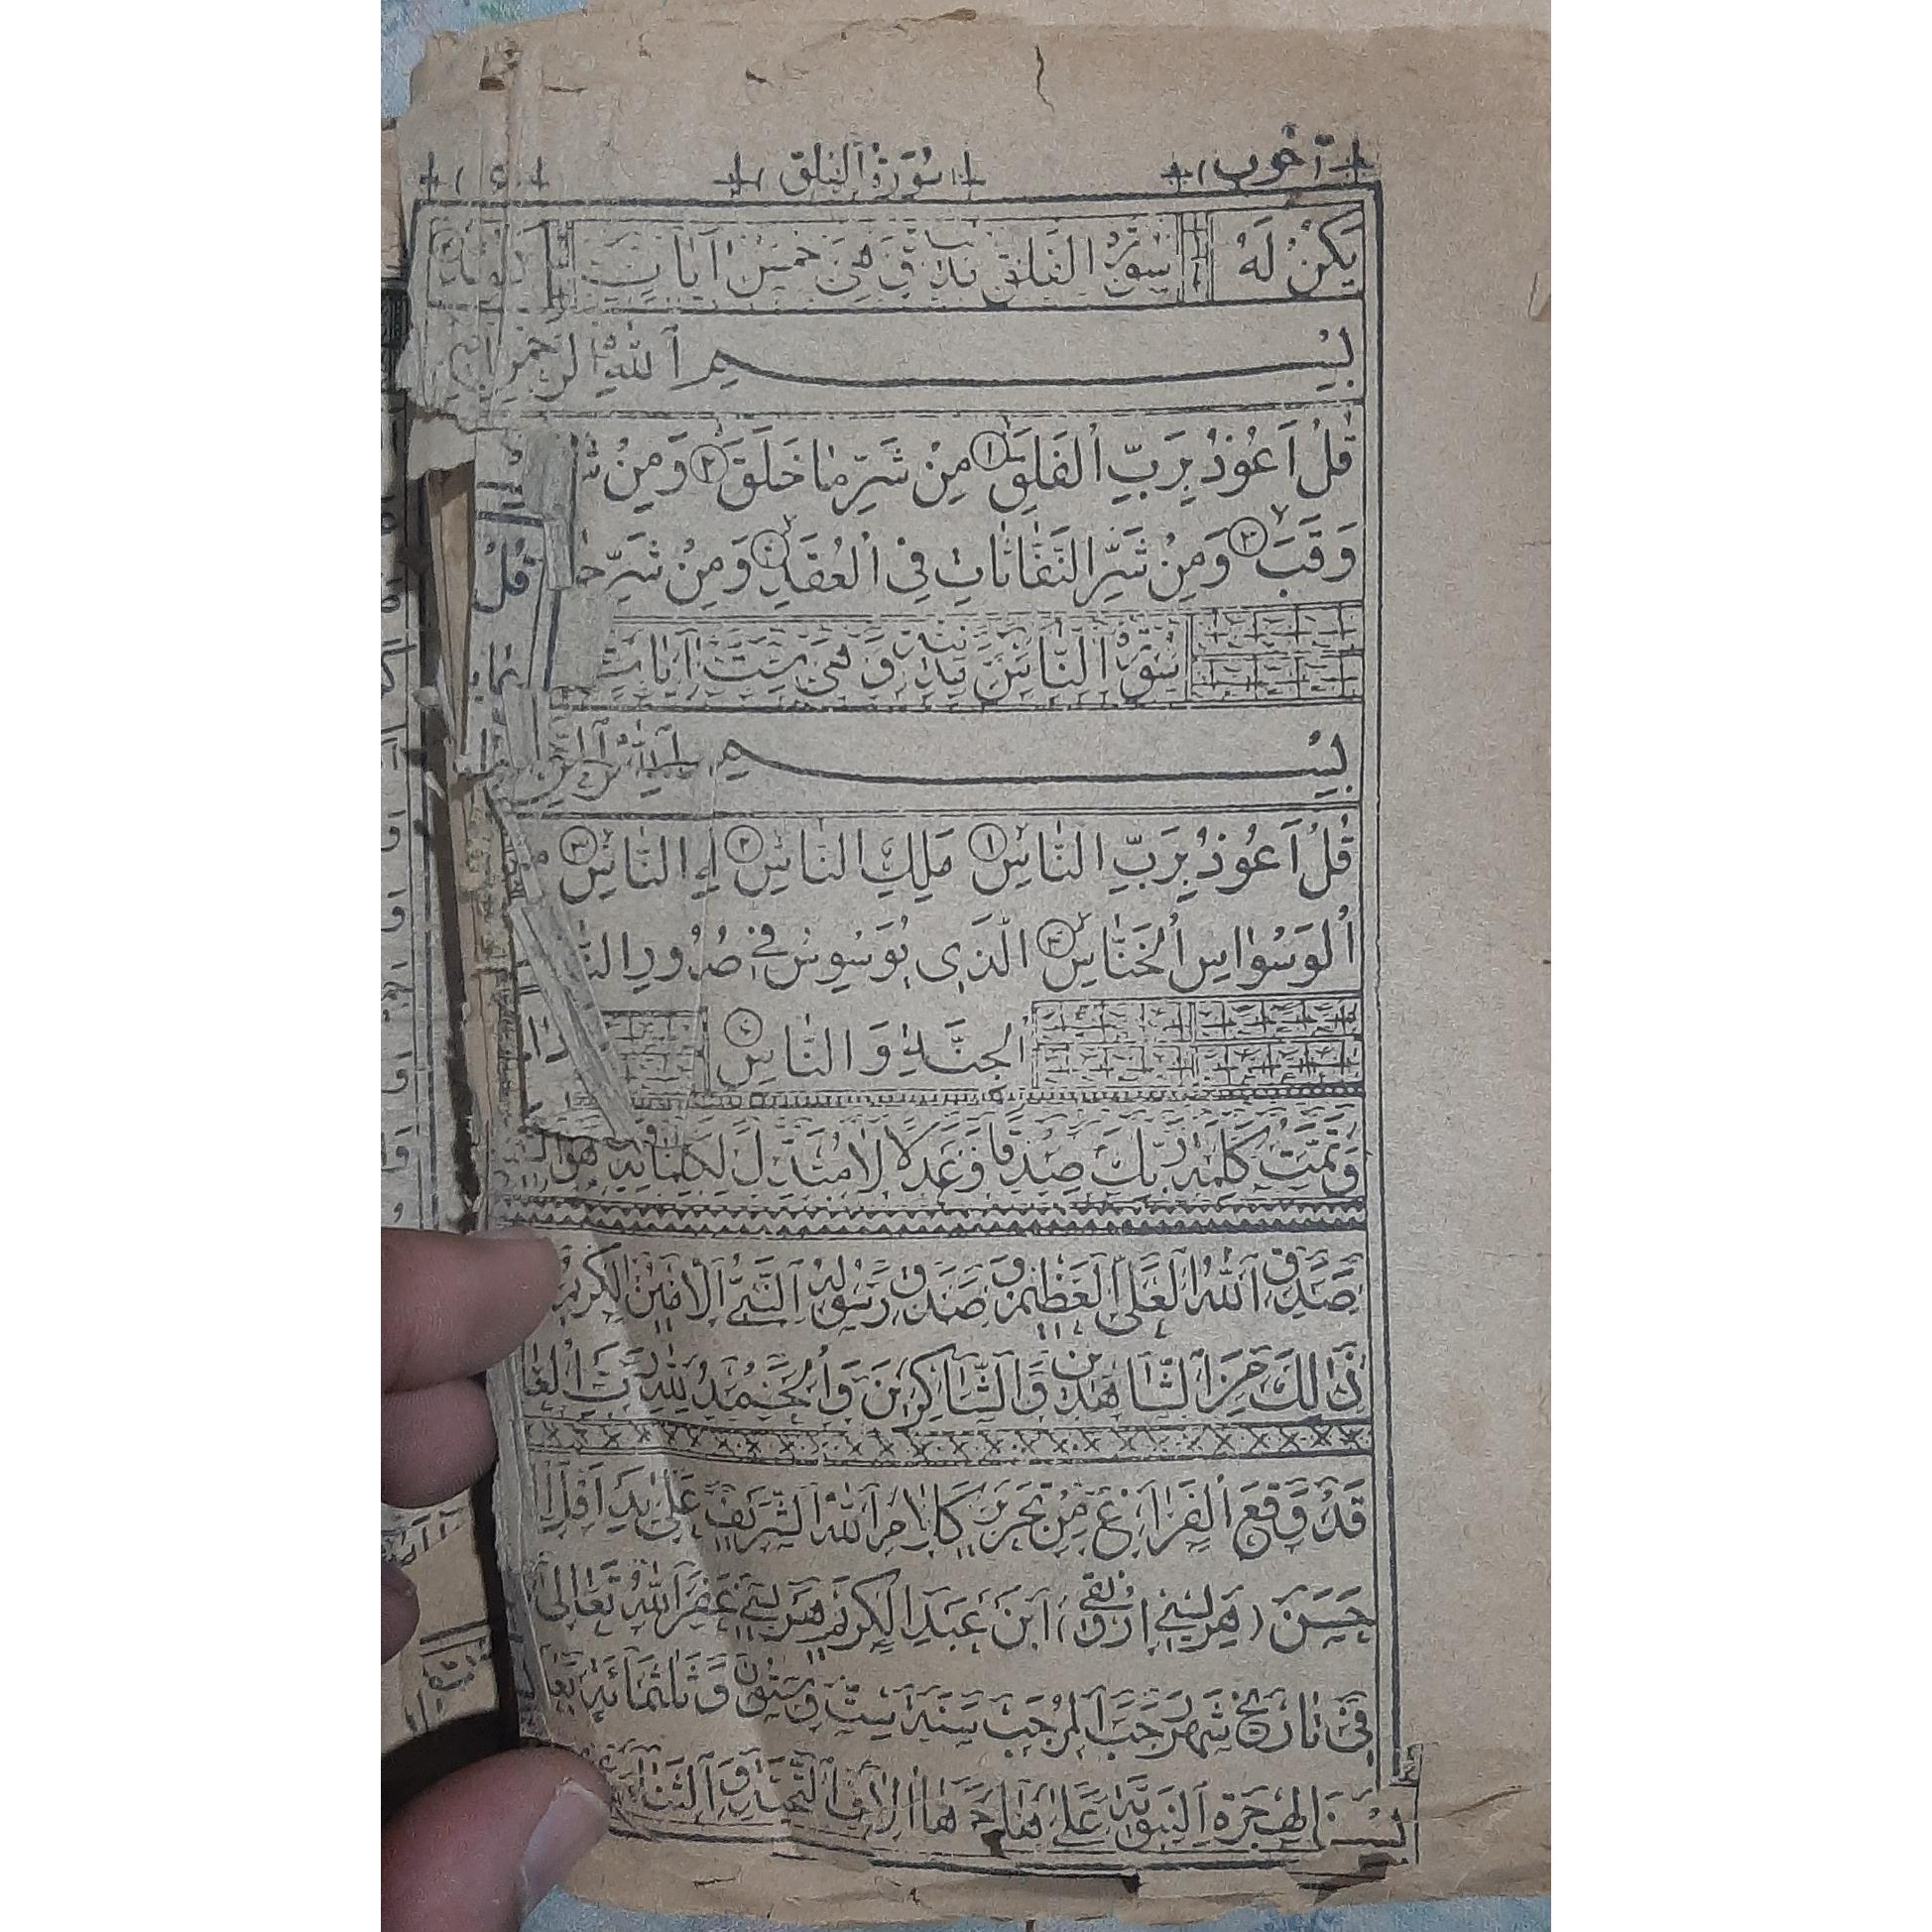 سُورَةُ الْفَلَق
يَكُنْ لَهُ سورة الفلق وَ هِيَ خَمْسُ اٰيَاتٍ
بِسْمِ اللّٰهِ الرَّحْمٰنِ
قُلْ اَعُوذُ بِرَبِّ الْفَلَقِ ١ مِنْ شَرِّ مٰا خَلَقَ ٢ وَ مِنْ
وَقَبَ ٣ وَ مِنْ شَرِّ النَّفّٰاثٰاتِ فِي الْعُقَدِ وَ مِنْ شَرِّ قُلْ
سورة النّاس وَ هِيَ سِتُّ اٰيَاتٍ
بِسْمِ اللّٰهِ
قُلْ اَعُوذُ بِرَبِّ النّٰاسِ ١ مَلِكِ النّٰاسِ ٢ اِلٰهِ النّٰاسِ ٣
الْوَسْوٰاسِ الْخَنّٰاسِ الَّذِى يُوَسْوِسُ فِي صُدُورِ
الْجِنَّةِ وَ النّٰاسِ
وَ تَمَّتْ كَلِمَةُ رَبِّكَ صِدْقًا وَ عَدْلًا لَا مُبَدِّلَ لِكَلِمَاتِهِ هُوَ
صَدَقَ اللّٰهُ الْعَلِىُّ الْعَظِيمُ وَ صَدَقَ رَسُولُهُ النَّبِىُّ الْاَمِينُ الْكَرِيمُ
ذٰالِكَ مِنَ الشَّاهِدِينَ وَ الشَّاكِرِينَ وَ الْحَمْدُ لِلّٰهِ رَبِّ
قَدْ وَقَعَ الْفَرَاغُ مِنْ تَحْرِيرِ كَلَامِ اللّٰهِ الشَّرِيفِ عَلٰى يَدِ
حَسَنَ (هَرِيسِى ارونقى) ابْنِ عَبْدِ الْكَرِيمِ هَرِيسِى غَفَرَ اللّٰهُ تَعَالٰى
فِى تَارِيخِ شَهْرِ رَجَبِ الْمُرَجَّبِ سَنَةَ سِتٍّ وَ سِتُّونَ وَ ثَلٰثَمِائَةٍ
الْهِجْرَةِ النَّبَوِيَّةِ عَلٰى هَاجِرِهَا اٰلَافُ التَّحِيَّةِ وَ الثَّنَاءِ